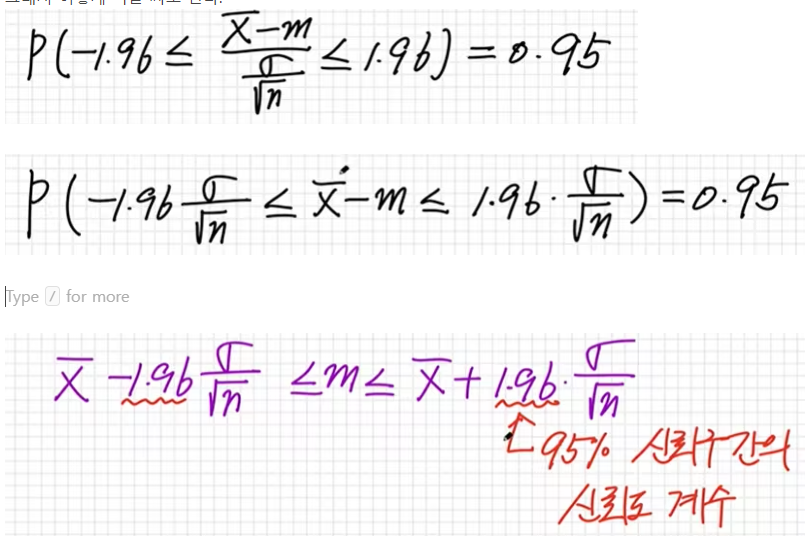 P(-1.96 ≤ (X̄-m)/(σ/√n) ≤ 1.96) = 0.95
P(-1.96 σ/√n ≤ X̄-m ≤ 1.96 · σ/√n) = 0.95
Type / for more
X̄ -1.96 σ/√n ≤ m ≤ X̄ + 1.96 · σ/√n
95% 신뢰구간의
신뢰도 계수